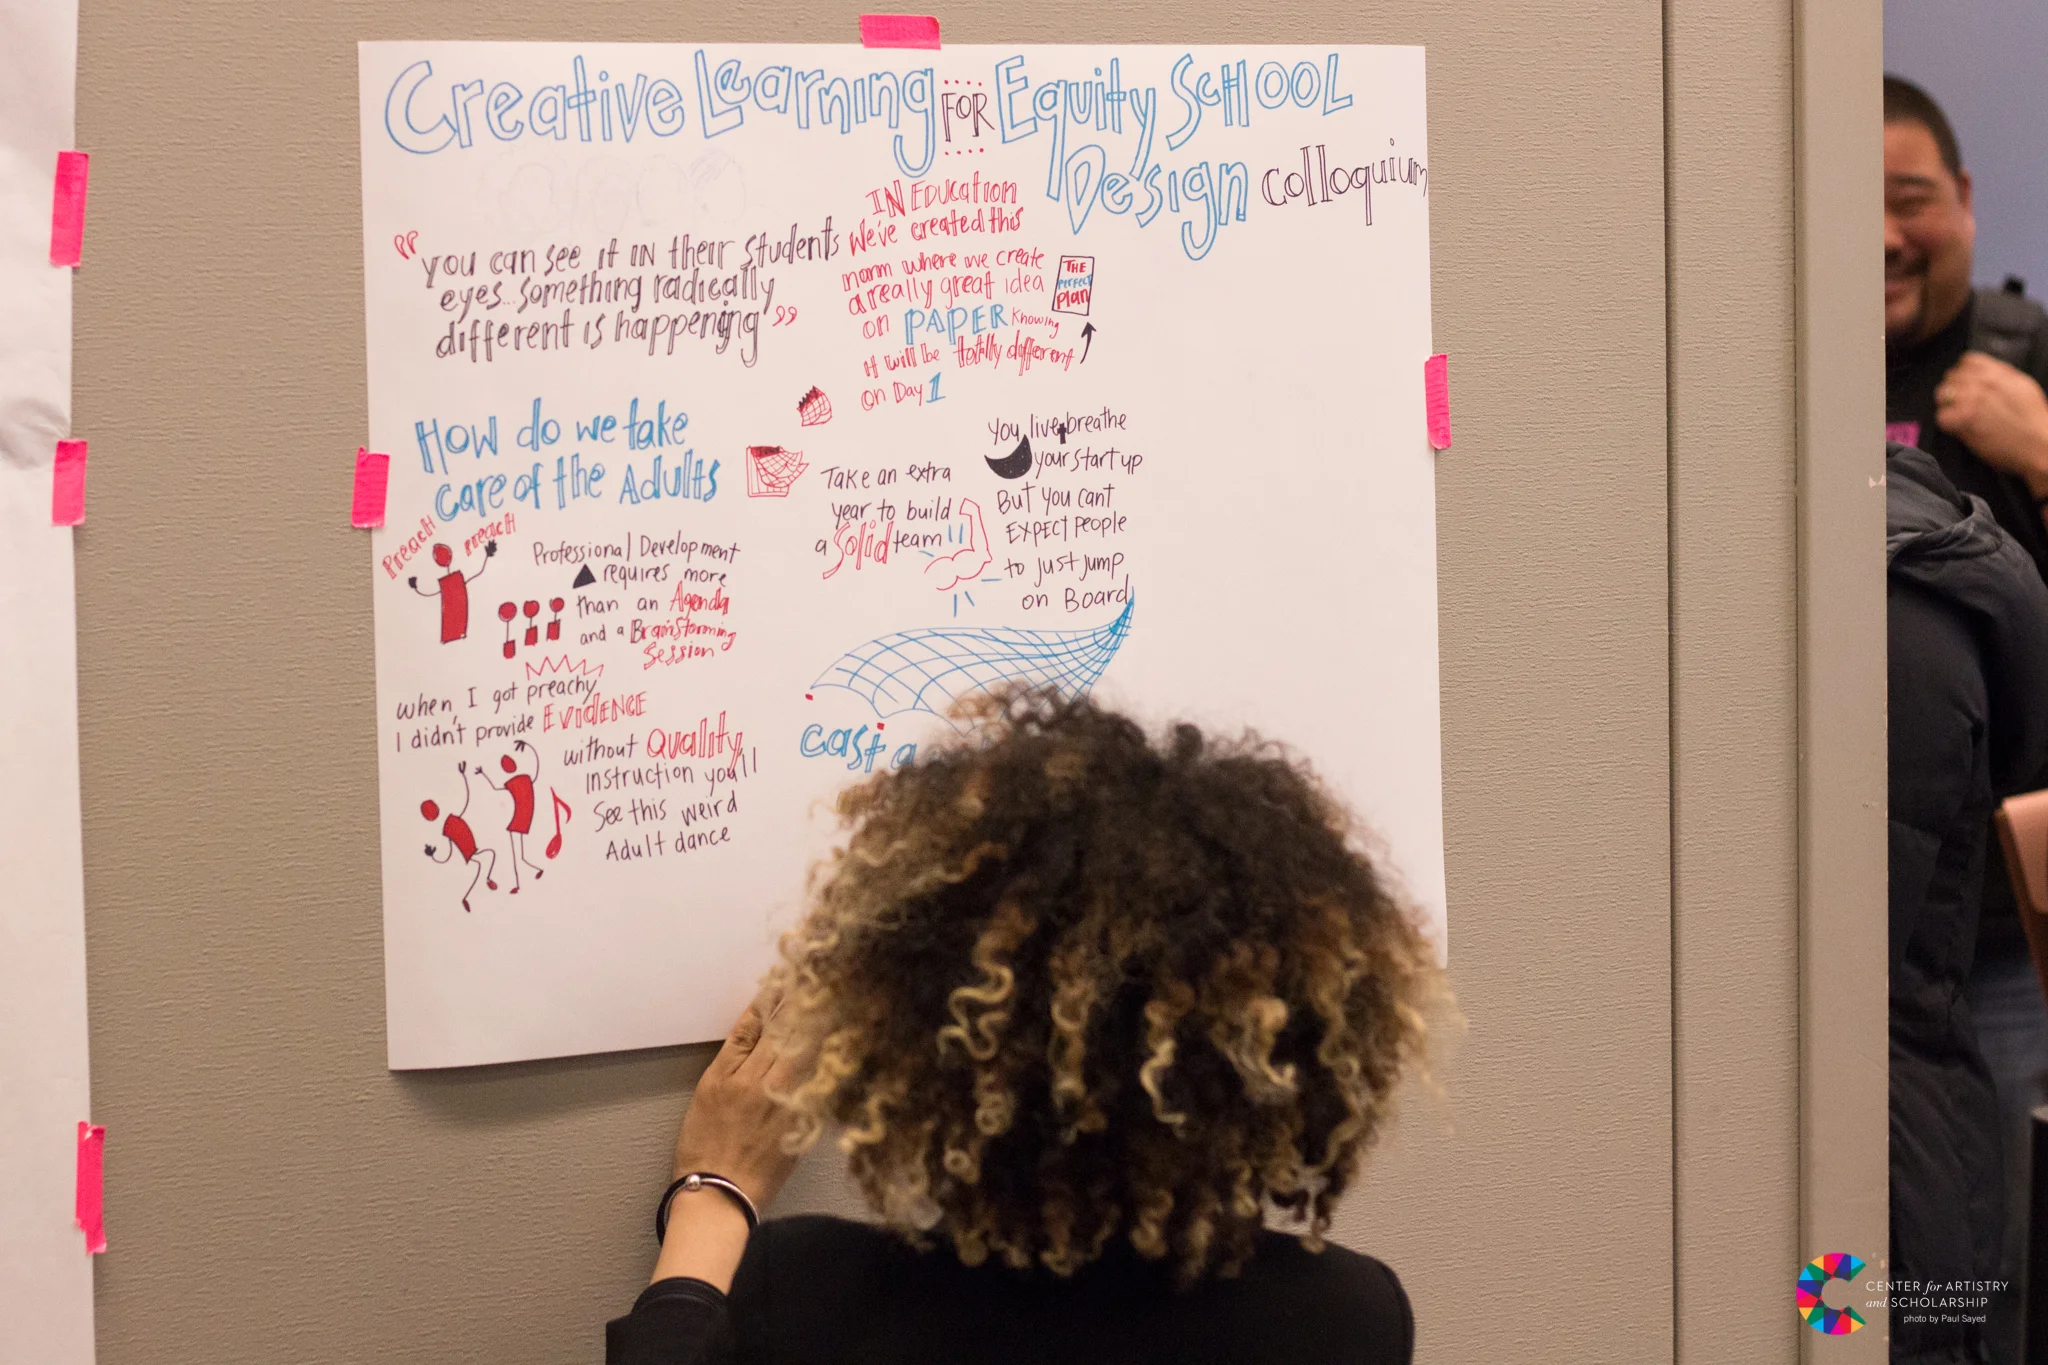 Creative Learning FOR Equity SCHOOL
Design Colloquium
"You can see it IN their Students
eyes...something radically
different is happening"
IN Education
We've created this
norm where we create
a really great idea
on PAPER Knowing
it will be totally different
on Day 1
THE
PERFECT
Plan
How do we take
care of the Adults
PREACH PREACH
Professional Development
requires more
than an Agenda
and a Brainstorming
Session
when I got preachy
I didn't provide EVIDENCE
without Quality
instruction you'll
See this weird
Adult dance
Take an extra
year to build
a Solid team
You live + breathe
your start up
But you cant
EXPECT People
to just jump
on Board
cast a
CENTER for ARTISTRY
and SCHOLARSHIP
photo by Paul Sayed